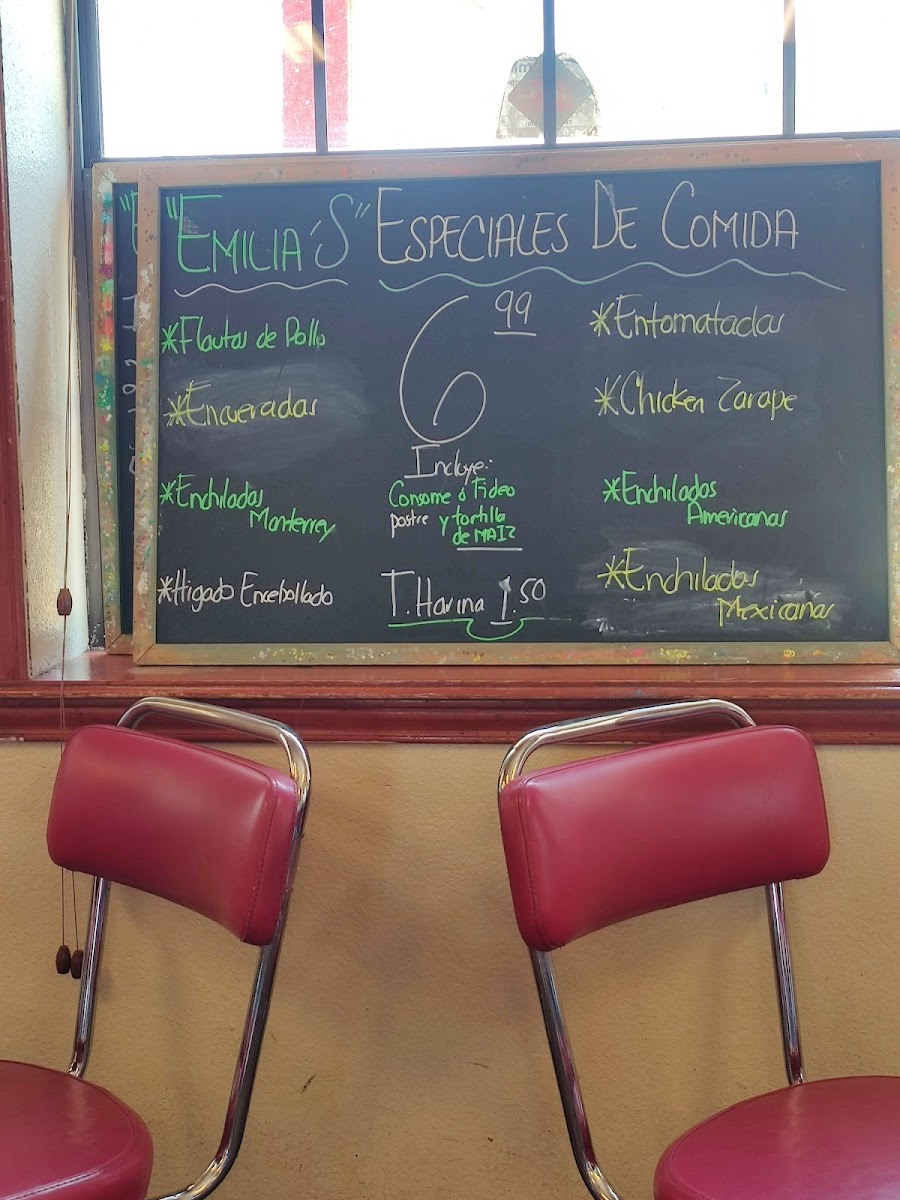 "EMILIA'S" ESPECIALES DE COMIDA
*Flautas de Pollo
*Encueradas
*Enchiladas
Monterrey
*Higado Encebollado
6 99
Incluye:
Consome ó Fideo
postre y tortilla
de MAIZ
T. Harina 1.50
*Entomatadas
*Chicken Zarape
*Enchiladas
Americanas
*Enchiladas
Mexicanas